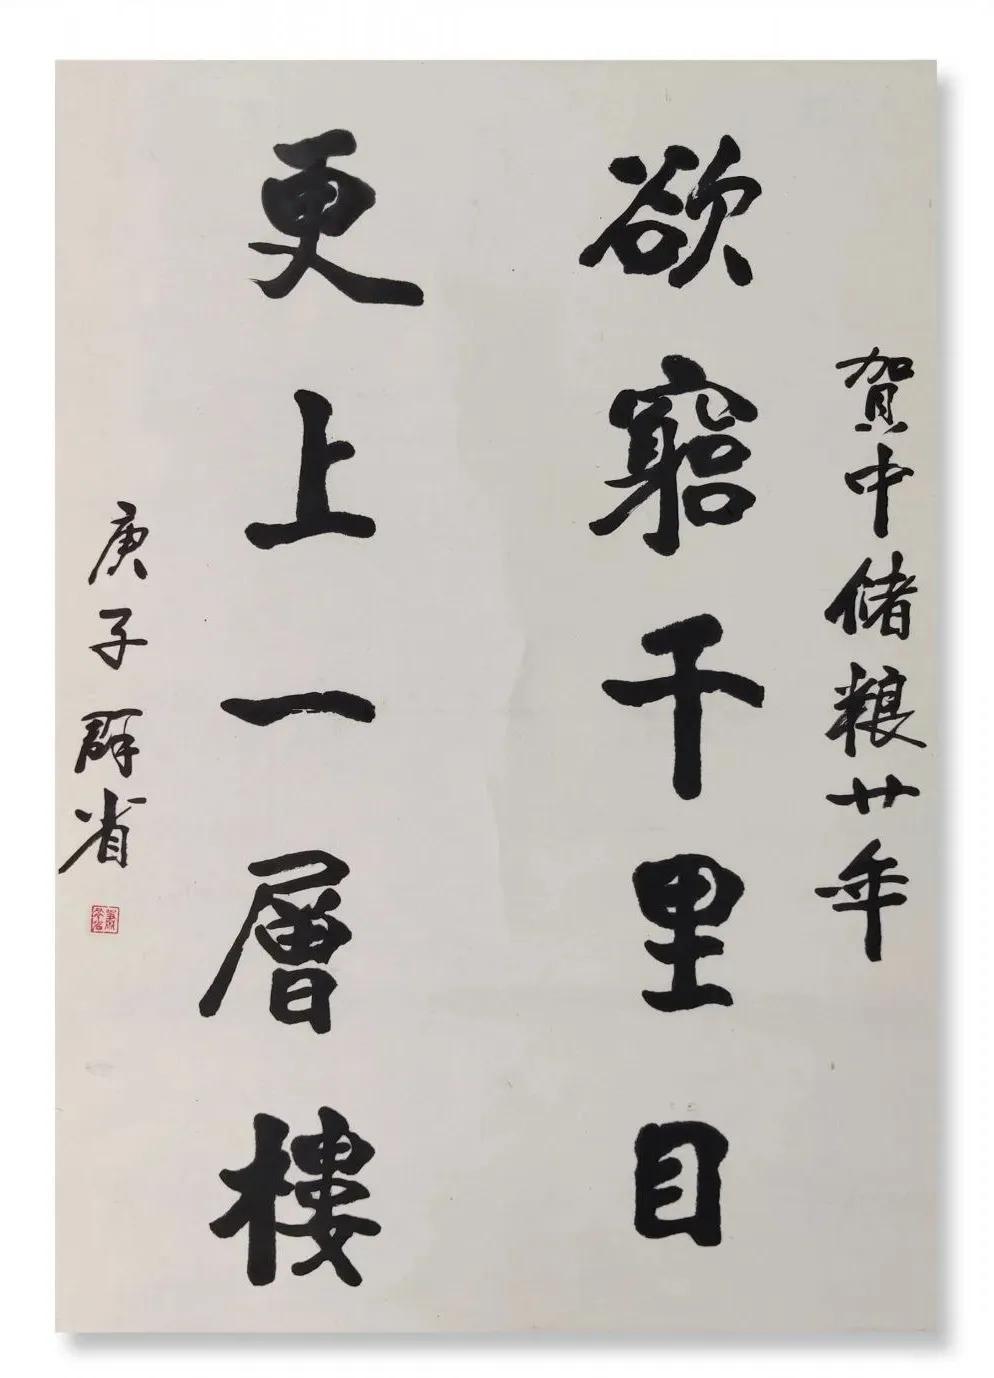 賀中储粮廿年
欲窮千里目
更上一層樓
庚子 群省